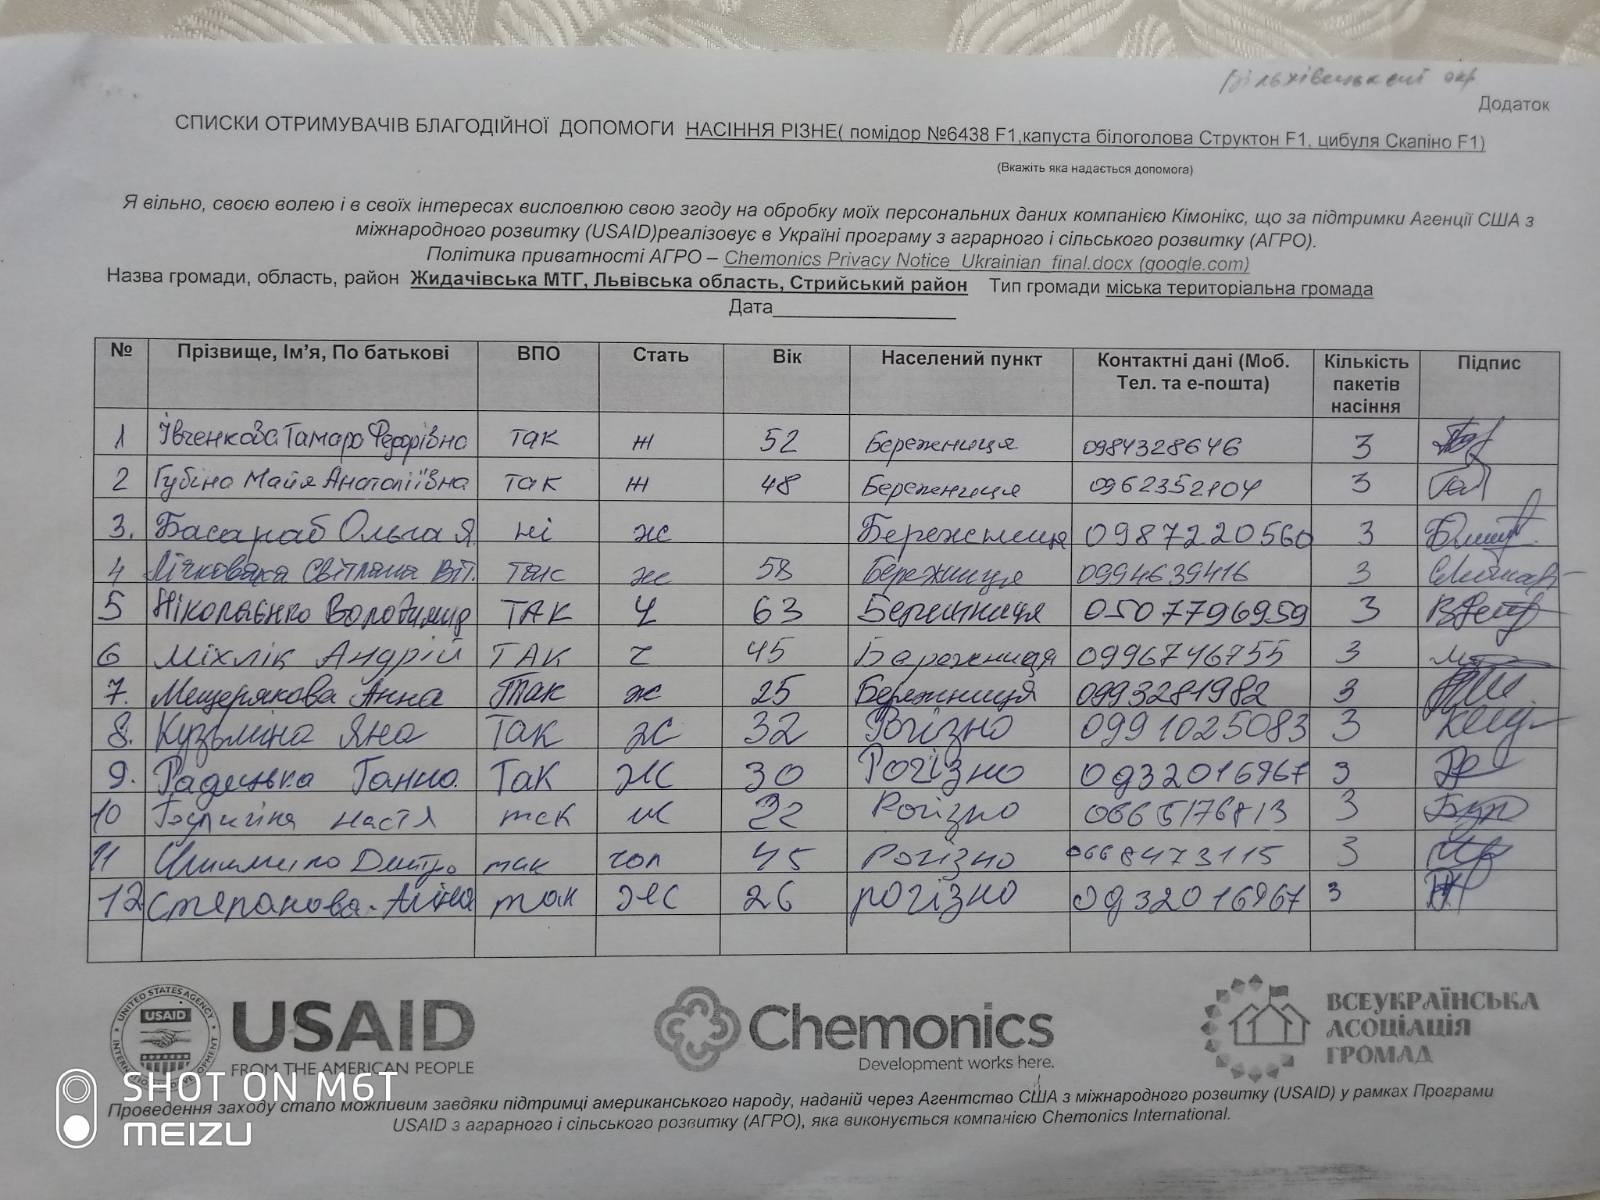 Вільхівецький окр
Додаток
СПИСКИ ОТРИМУВАЧІВ БЛАГОДІЙНОЇ ДОПОМОГИ НАСІННЯ РІЗНЕ( помідор №6438 F1,капуста білоголова Структон F1, цибуля Скапіно F1)
(Вкажіть яка надається допомога)
Я вільно, своєю волею і в своїх інтересах висловлюю свою згоду на обробку моїх персональних даних компанією Кімонікс, що за підтримки Агенції США з
міжнародного розвитку (USAID)реалізовує в Україні програму з аграрного і сільського розвитку (АГРО).
Політика приватності АГРО – Chemonics Privacy Notice_Ukrainian_final.docx (google.com)
Назва громади, область, район Жидачівська МТГ, Львівська область, Стрийський район Тип громади міська територіальна громада
Дата
№ Прізвище, Ім'я, По батькові ВПО Стать Вік Населений пункт Контактні дані (Моб. Тел. та е-пошта) Кількість пакетів насіння Підпис
1 Івченкова Тамара Федорівна так ж 52 Бережниця 0984328646 3
2 Губіна Майя Анатоліївна так ж 48 Бережниця 0962352104 3
3. Басараб Ольга Я. ні ж Бережниця 0987220560 3
4 Світлана Віт. так ж 58 Бережниця 0994639416 3
5 Ніколаєнко Володимир ТАК Ч 63 Бережниця 0507796959 3
6 Міхлік Андрій ТАК ч 45 Бережниця 0996746755 3
7. Мещерякова Анна Так ж 25 Бережниця 0993281982 3
8. Кузьміна Яна Так Ж 32 Рогізно 0991025083 3
9. Радецька Ганна Так Ж 30 Рогізно 0932016967 3
10 Настя так ж 22 Рогізно 0665176813 3
11 Дмитро так чол 45 Рогізно 0668473115 3
12 Степанова Аліна так Ж 26 рогізно 0932016967 3
UNITED STATES AGENCY
USAID
INTERNATIONAL DEVELOPMENT
USAID
FROM THE AMERICAN PEOPLE
Chemonics
Development works here.
ВСЕУКРАЇНСЬКА
АСОЦІАЦІЯ
ГРОМАД
SHOT ON M6T
MEIZU
Проведення заходу стало можливим завдяки підтримці американського народу, наданій через Агентство США з міжнародного розвитку (USAID) у рамках Програми
USAID з аграрного і сільського розвитку (АГРО), яка виконується компанією Chemonics International.